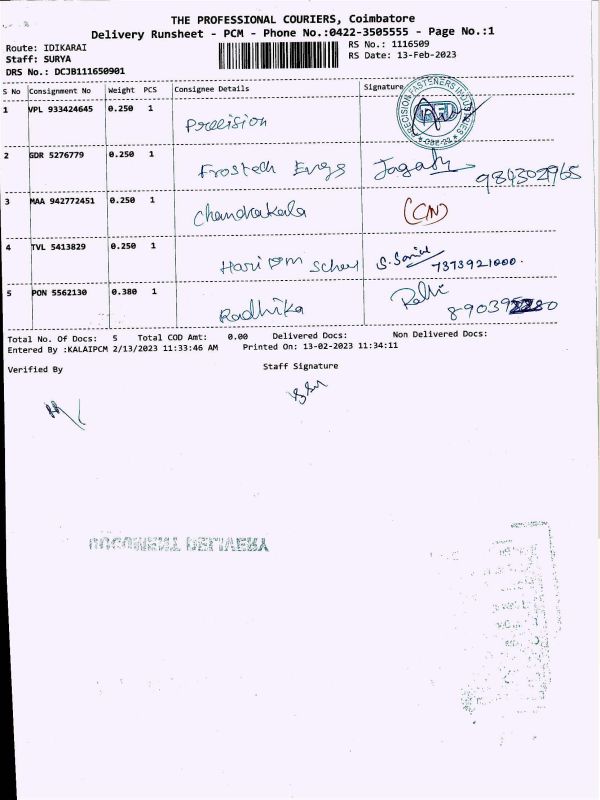 THE PROFESSIONAL COURIERS, Coimbatore
Delivery Runsheet - PCM - Phone No.:0422-3505555 - Page No.:1
Route: IDIKARAI
Staff: SURYA
DRS No.: DCJB111650901
RS No.: 1116509
RS Date: 13-Feb-2023
S No Consignment No Weight PCS Consignee Details Signature
1 VPL 933424645 0.250 1 Precision
PRECISION FASTENERS INDUSTRIES
2 GDR 5276779 0.250 1 Frostech Engs Jagadh
3 MAA 942772451 0.250 1 Chandrakala (CN)
4 TVL 5413829 0.250 1 Hari om School 7373921000.
5 PON 5562130 0.380 1 Radhika
Total No. Of Docs: 5 Total COD Amt: 0.00 Delivered Docs: Non Delivered Docs:
Entered By :KALAIPCM 2/13/2023 11:33:46 AM Printed On: 13-02-2023 11:34:11
Verified By Staff Signature
DOCUMENT DELIVERY